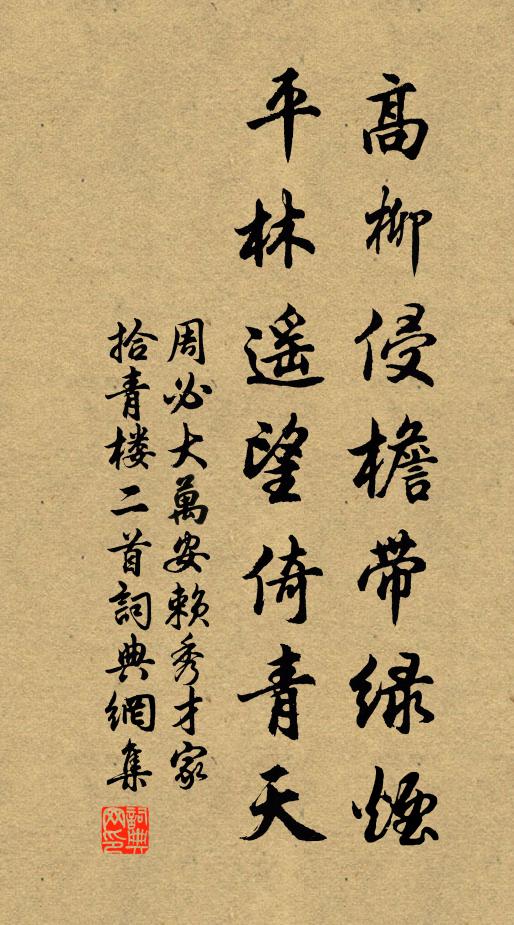 高柳侵檐帶綠煙
平林遥望倚青天
周必大萬安賴秀才家
拾青樓二首詞典網集
詞典网印